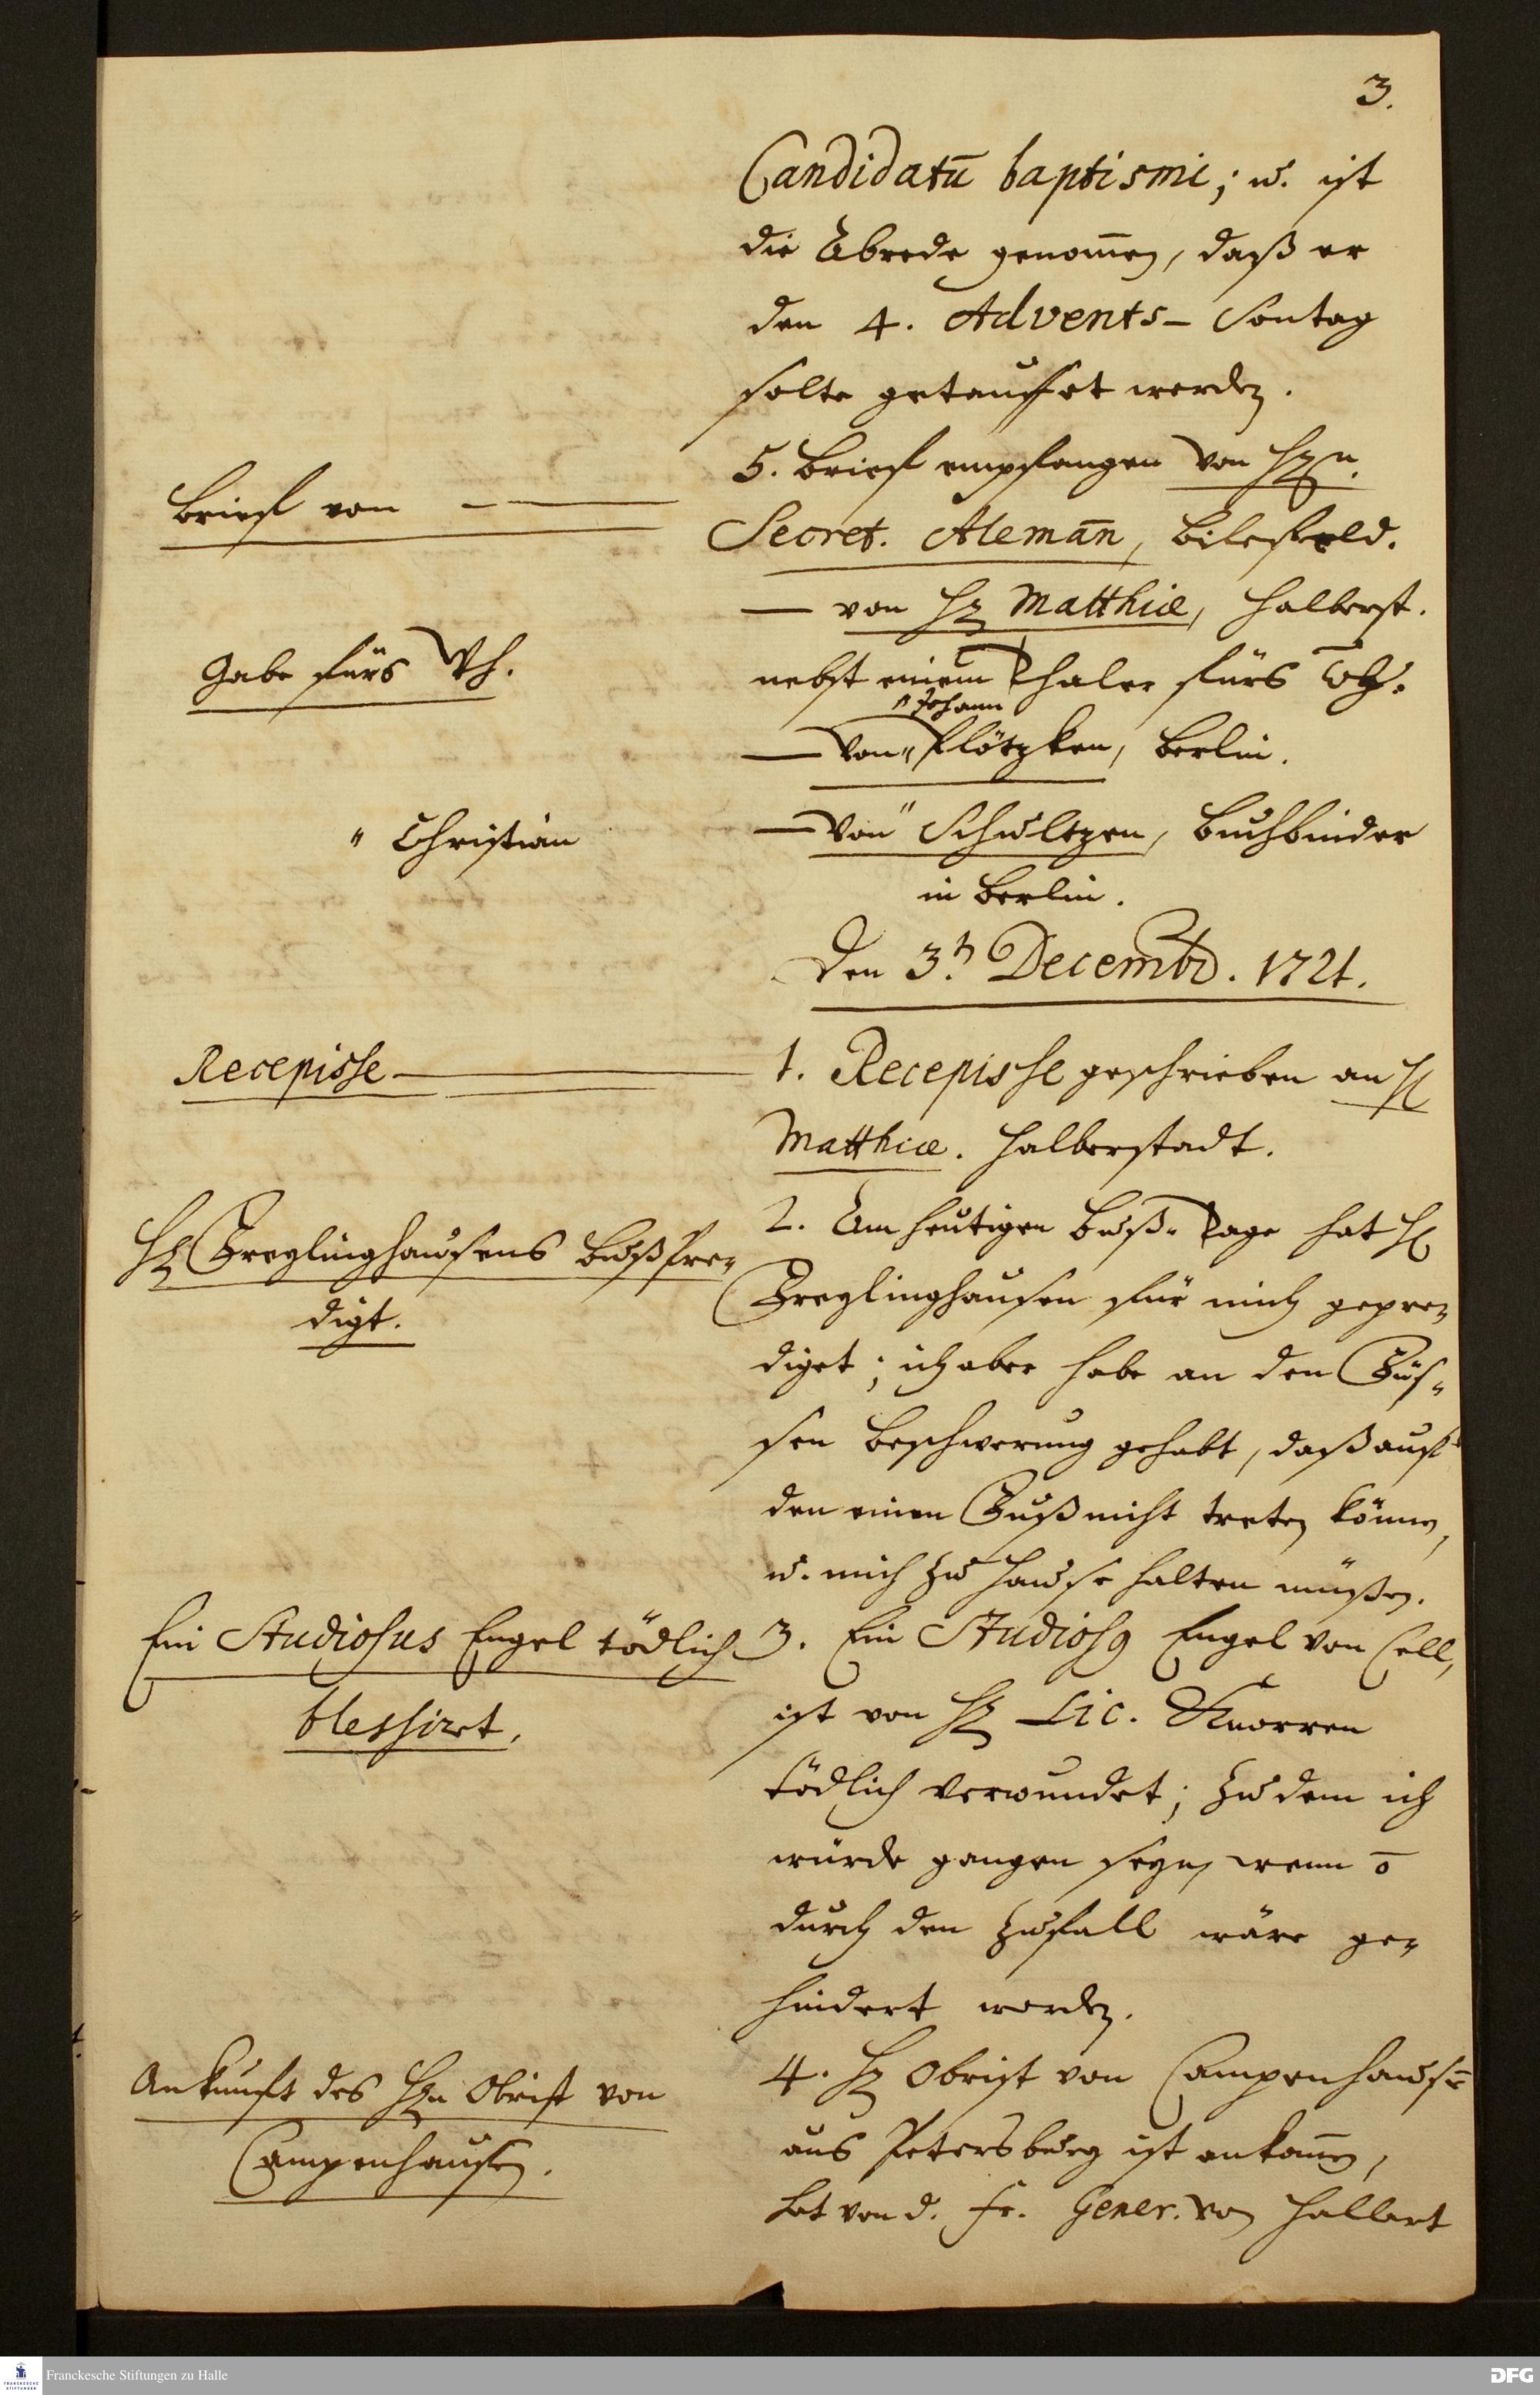 3.
Candidatū baptismi; u. ist
die Abrede genom̅en, daß er
den 4. Advents- Sontag
solte getauffet werden.
Brief von
5. Brief empfangen von H.n
Secret. Aleman̅, Bilefeld.
— von H. Matthiæ, Halberst.
Gabe fürs Wh.
nebst einem Thaler fürs Wh.
" Johann
— von " Flötzken, Berlin.
" Christian
— von " Schultzen, Buchbinder
in Berlin.
Den 3.t Decembr. 1721.
Recepisse
1. Recepisse geschrieben an H.
Matthiæ. Halberstadt.
H. Freylinghausens Bußpre-
digt.
2. Am heutigen Buß-Tage hat H.
Freylinghausen für mich gepre-
diget; ich aber habe an den Füs-
sen Beschwerung gehabt, daß auf
den einen Fuß nicht treten können,
u. mich zu Hause halten müßen.
Ein Studiosus Engel tödlich
blessirt.
3. Ein Studiosg Engel von Cell,
ist von H. Lic. Knorren
tödlich verwundet; zu dem ich
würde gangen seyn, wenn o̅
durch den Zufall wäre ge-
hindert worden.
Ankunft des H.n Obrist von
Campenhausen.
4. H. Obrist von Campenhausē
aus Petersburg ist ankom̅en,
hat von d. Fr. Gener. von Hallart
Franckesche Stiftungen zu Halle
DFG